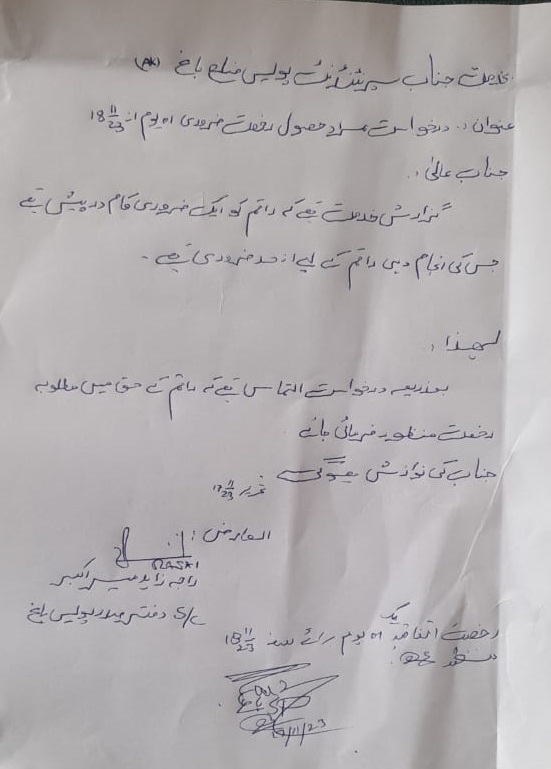 بخدمت جناب سپرنٹنڈنٹ پولیس ضلع باغ (AK)
عنوان :. درخواست بمراد حصول رخصت ضروری 01 یوم از 18/11/23
جناب عالی :.
گزارش خدمت ہے کہ راقم کو ایک ضروری کام درپیش ہے
جس کی انجام دہی راقم کے لیے از حد ضروری ہے -
لہذا :
بذریعہ درخواست التماس ہے کہ راقم کے حق میں مطلوبہ
رخصت منظور فرمائی جائے
جناب کی نوازش ہوگی
تحریر 17/11/23
العارض :
راجہ زاہد اکبر
S/C دفتر پولیس باغ
رخصت اتفاقیہ یک 01 یوم برائے 18/11/23
منظور ہے
SP باغ
17/11/23